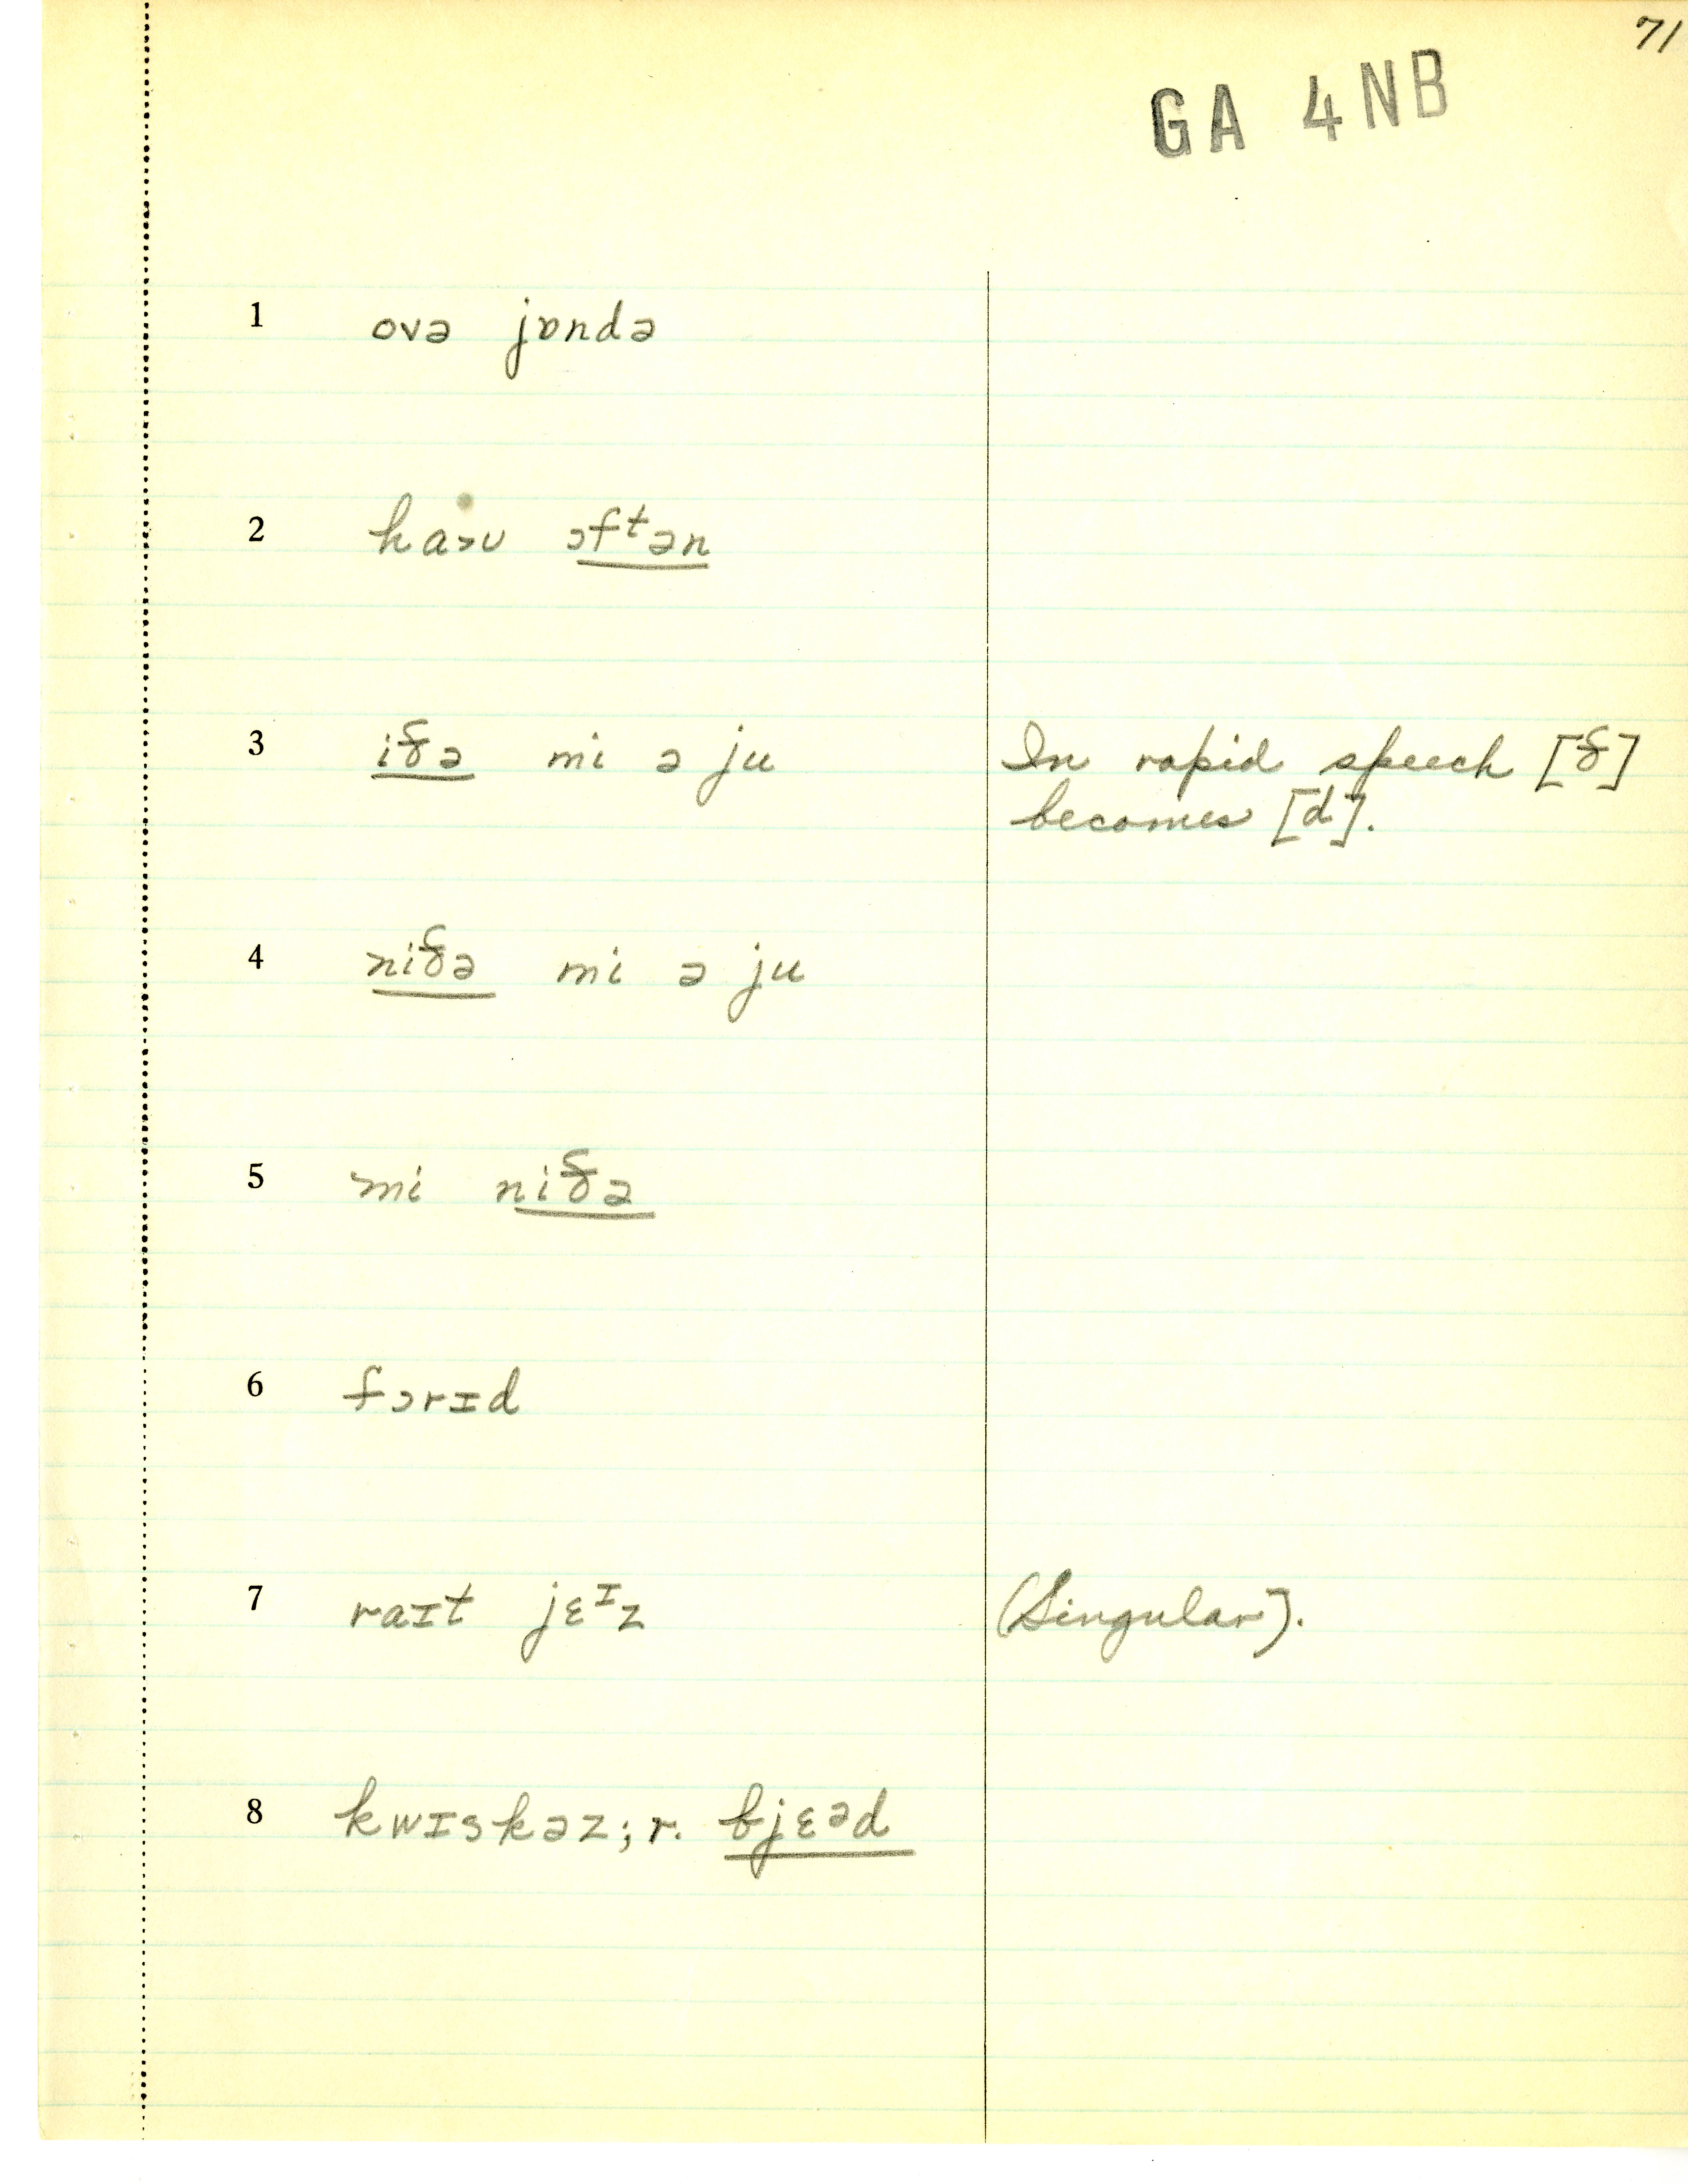 71
GA 4NB
1 ovə jɒndə
2 ha˃ʊ ɔfᵗən
3 iðə mi ə ju In rapid speech [ð]
becomes [d].
4 niðə mi ə ju
5 mi niðə
6 fɔrɪd
7 raɪt jɛᶦz (Singular).
8 kwɪskəz; r. bjɛᵊd